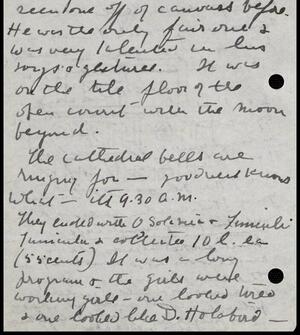 off of canvass before.
He was the only fair one &
was very talented in his
songs & gestures. It was
on the tile floor of the
open court with the moon
beyond.
The cathedral bells are
ringing for — goodness knows
what — its 9.30 a.m.
They ended with O Solemio & Funiculi
Funicula & collected 10 l. ea
(55 cents) It was a long
program & the girls were
working girls — one looked tired
& one looked like D. Holabird —